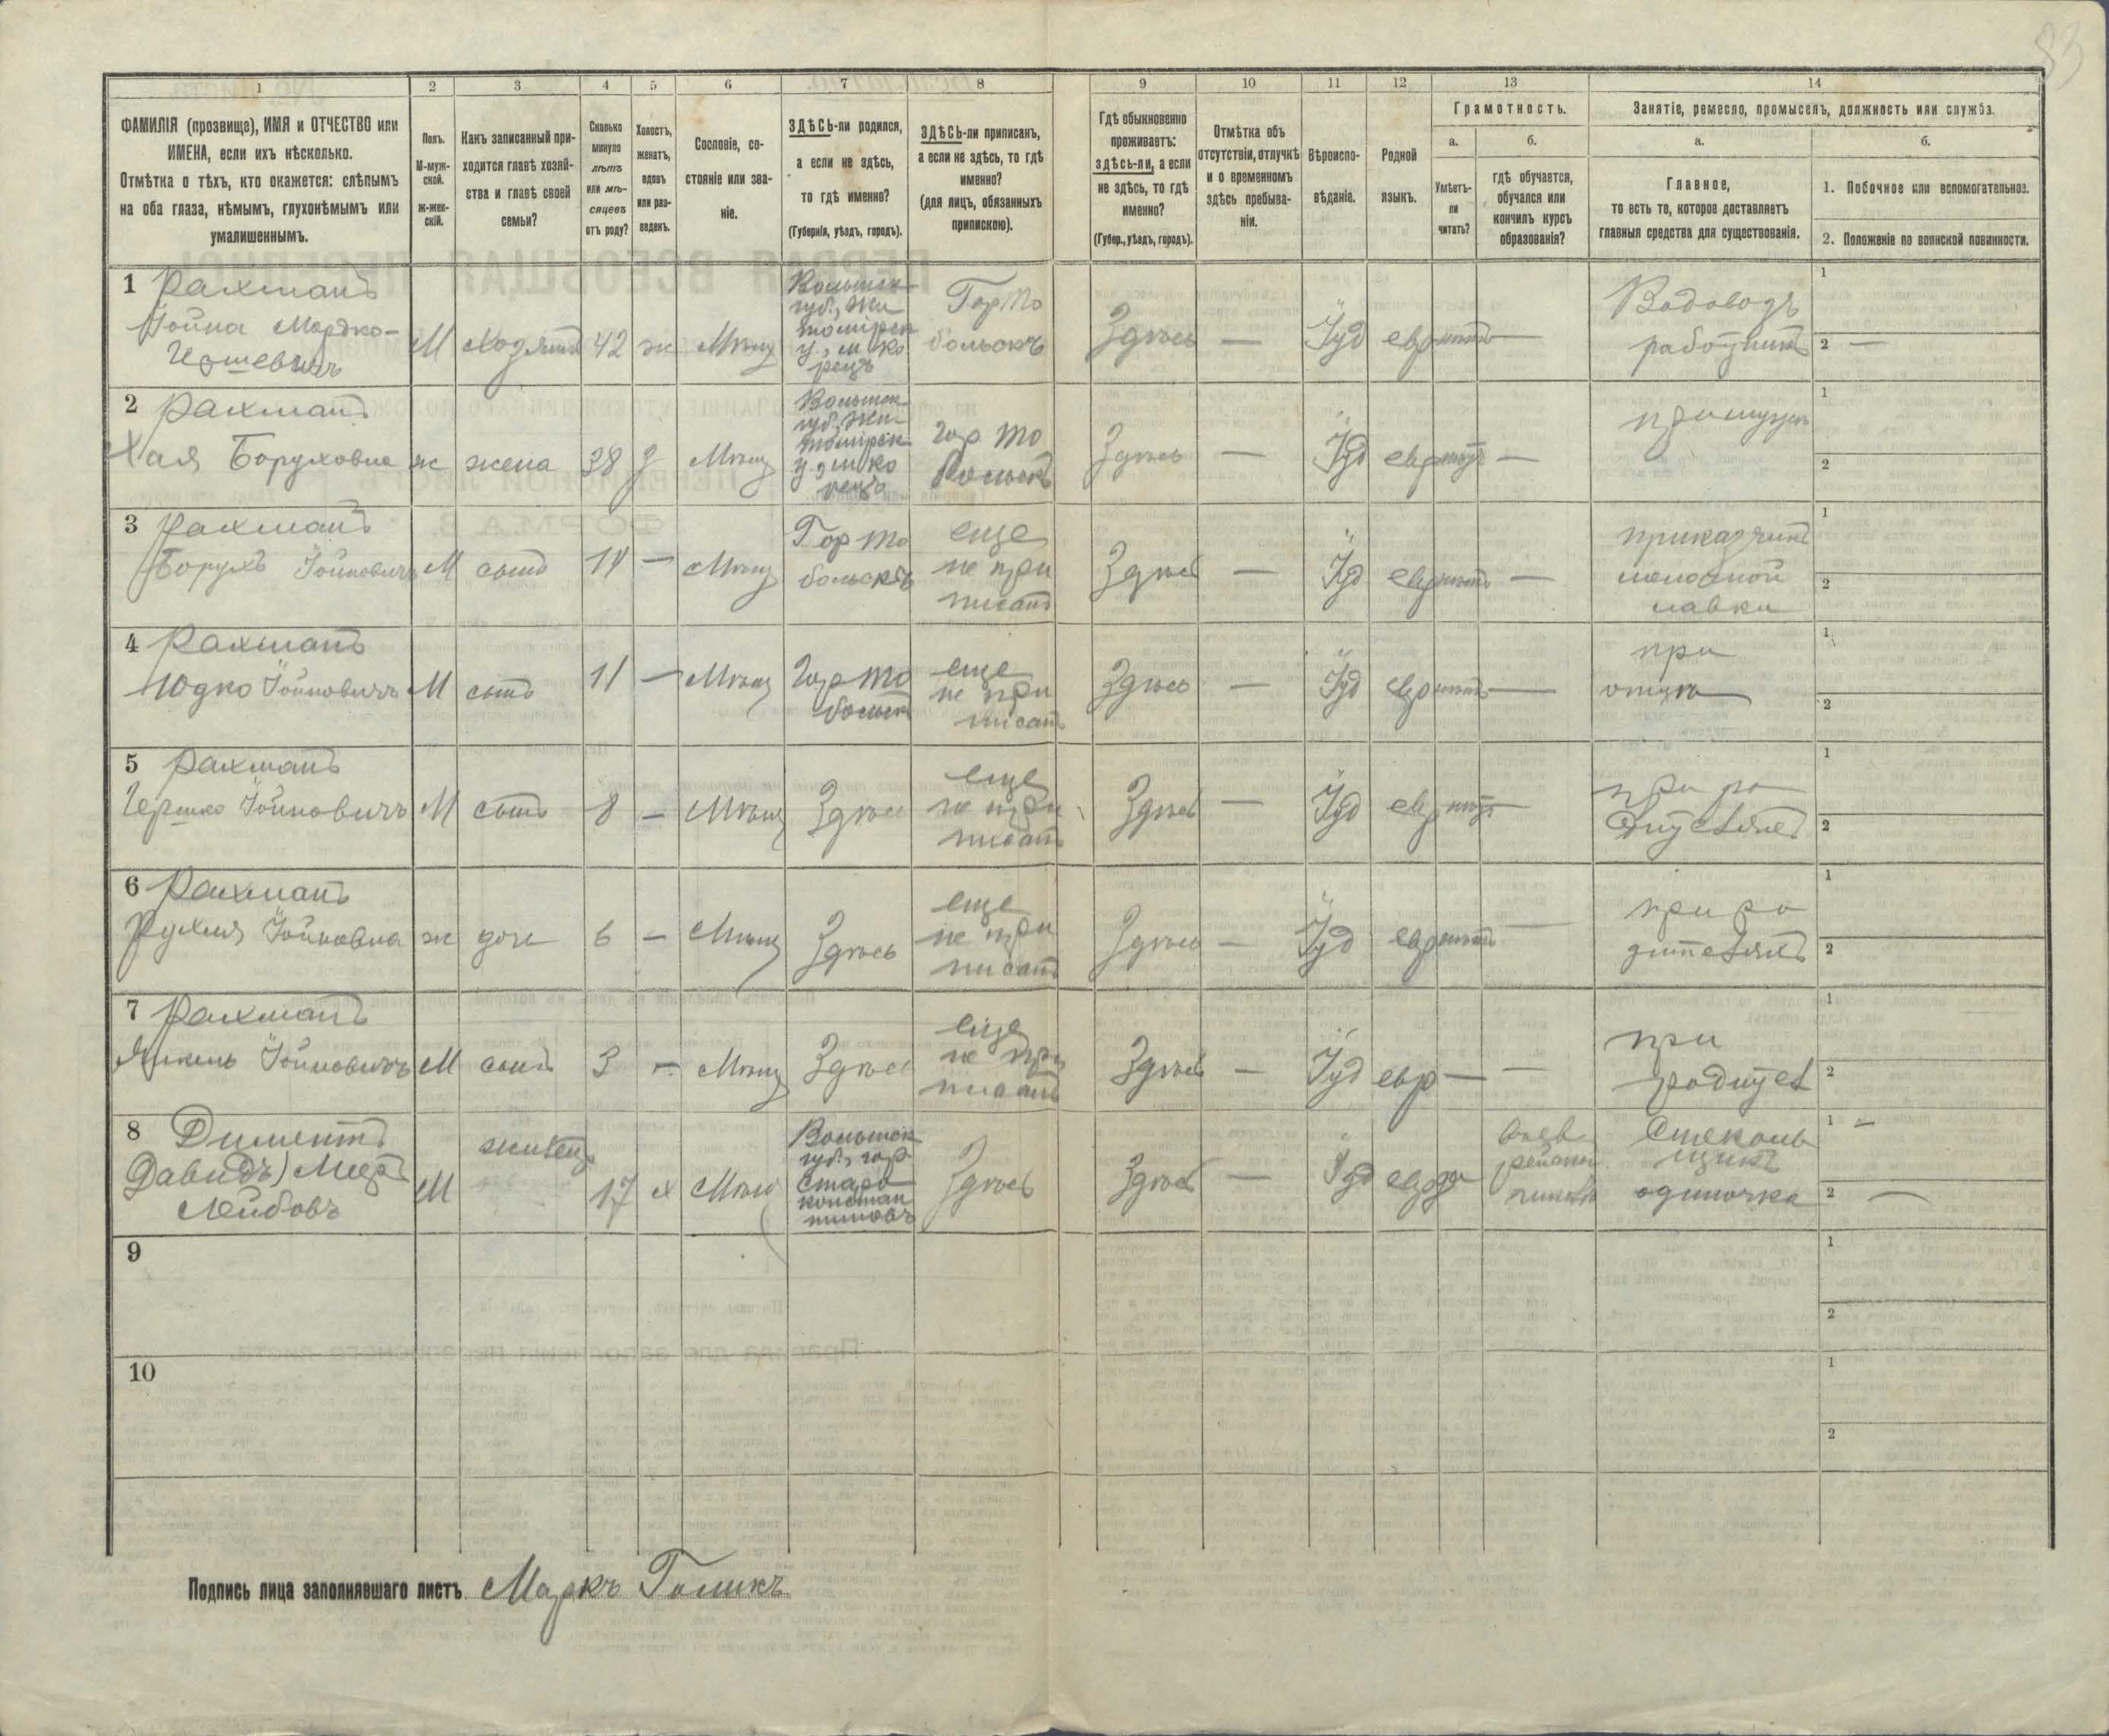 83
1
2
3
4
5
6
7
8
9
10
11
12
13
14
ФАМИЛІЯ (прозвище), ИМЯ и ОТЧЕСТВО или
ИМЕНА, если ихъ нѣсколько.
Отмѣтка о тѣхъ, кто окажется: слѣпымъ
на оба глаза, нѣмымъ, глухонѣмымъ или
умалишеннымъ.
Полъ.
М-муж-
ской.
Ж-жен-
скій.
Какъ записанный при-
ходится главѣ хозяй-
ства и главѣ своей
семьи?
Сколько
минуло
лѣтъ
или мѣ-
сяцевъ
отъ роду?
Холостъ,
женатъ,
вдовъ
или раз-
веденъ.
Сословіе, со-
стояніе или зва-
ніе.
ЗДѢСЬ-ли родился,
а если не здѣсь,
то гдѣ именно?
(Губернія, уѣздъ, городъ).
ЗДѢСЬ-ли приписанъ,
а если не здѣсь, то гдѣ
именно?
(для лицъ, обязанныхъ
припискою).
Гдѣ обыкновенно
проживаетъ:
здѣсь-ли, а если
не здѣсь, то гдѣ
именно?
(Губер., уѣздъ, городъ).
Отмѣтка объ
отсутствіи, отлучкѣ
и о временномъ
здѣсь пребыва-
ніи.
Вѣроиспо-
вѣданіе.
Родной
языкъ.
Грамотность.
а.
Умѣетъ-
ли
читать?
б.
гдѣ обучается,
обучался или
кончилъ курсъ
образованія?
Занятіе, ремесло, промыселъ, должность или служба.
а.
Главное,
то есть то, которое доставляетъ
главныя средства для существованія.
б.
1. Побочное или вспомогательное.
2. Положеніе по воинской повинности.
1 Рахманъ
Іойна Мордко-
Гершевичъ
М
Хозяинъ
42
ж
Мѣщ
Волынск
губ., Жи
томірск
у., м. Ко
рецъ
Гор То
больскъ
Здѣсь
—
Іуд
евр
нѣтъ
—
Водовозъ
работникъ
1
2 —
2 Рахманъ
Хая Боруховна
ж
жена
38
з
Мѣщ
Волынск
губ., Жи
томірск
у., м. Ко
рецъ
Гор То
больскъ
Здѣсь
—
Іуд
евр
нѣтъ
—
при мужѣ
1
2
3 Рахманъ
Борухъ Іойновичъ
М
сынъ
14
—
Мѣщ
Гор То
больскъ
еще
не при
писанъ
Здѣсь
—
Іуд
евр
нѣтъ
—
приказчикъ
мелочной
лавки
1
2
4 Рахманъ
Юдко Іойновичъ
М
сынъ
11
—
Мѣщ
Гор То
больск
еще
не при
писанъ
Здѣсь
—
Іуд
евр
нѣтъ
—
при
отцѣ
1
2
5 Рахманъ
Гершко Іойновичъ
М
сынъ
8
—
Мѣщ
Здѣсь
еще
не при
писанъ
Здѣсь
—
Іуд
евр
нѣтъ
—
при ро
дителяхъ
1
2
6 Рахманъ
Рухля Іойновна
ж
дочь
6
—
Мѣщ
Здѣсь
еще
не при
писанъ
Здѣсь
—
Іуд
евр
нѣтъ
—
при ро
дителяхъ
1
2
7 Рахманъ
Янкель Іойновичъ
М
сынъ
3
—
Мѣщ
Здѣсь
еще
не при
писанъ
Здѣсь
—
Іуд
евр
—
—
при
родител
1
2
8 Диментъ
Давидъ)
Лейбовъ
М
жилец
17
х
Мѣщ
Волынск
губ., гор
Старо
констан
тиновъ
Здѣсь
Здѣсь
—
Іуд
евр
да
Стеколь
щикъ
одиночка
1 —
2 —
9
1
2
10
1
2
Подпись лица заполнявшаго листъ Маркъ Голикъ